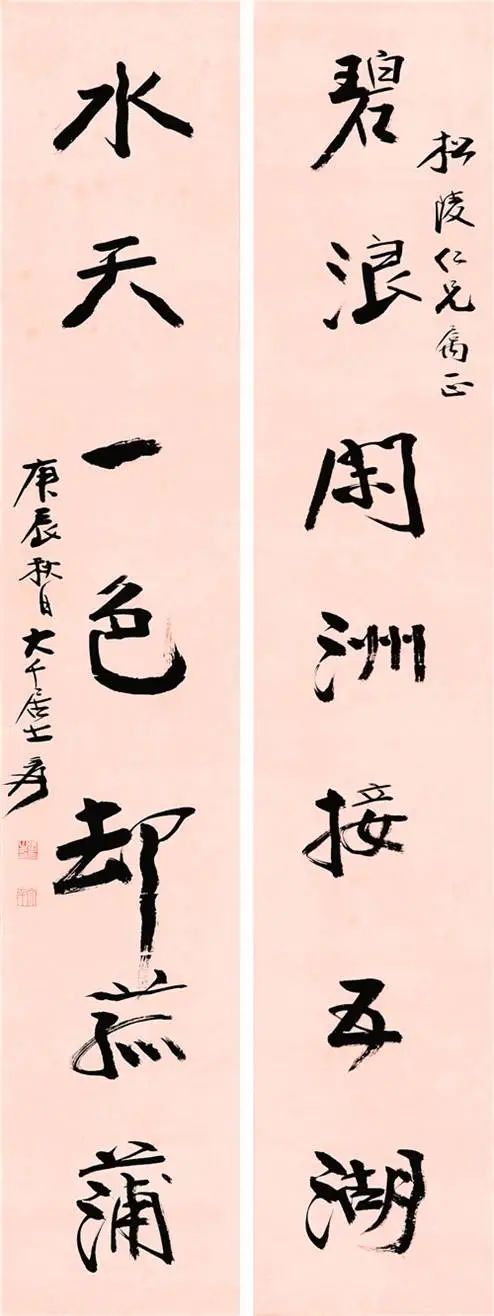 松陵仁兄正
碧浪閑洲接五湖
水天一色却菰蒲
庚辰秋日大千居士爰